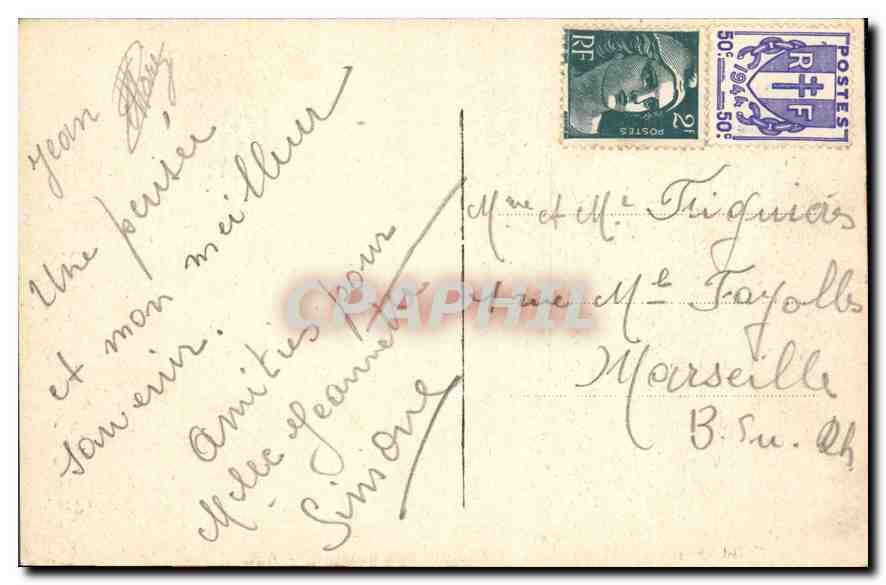 Jean
Une pensée
et mon meilleur
souvenir.
Amitiés pour
Melle Jeannette
Simone
RF
2F
POSTES
50c 1944 50c
R F
POSTES
Mme et Mr
4 rue Ml Fayolle
Marseille
B. du Rh
CPAPHIL